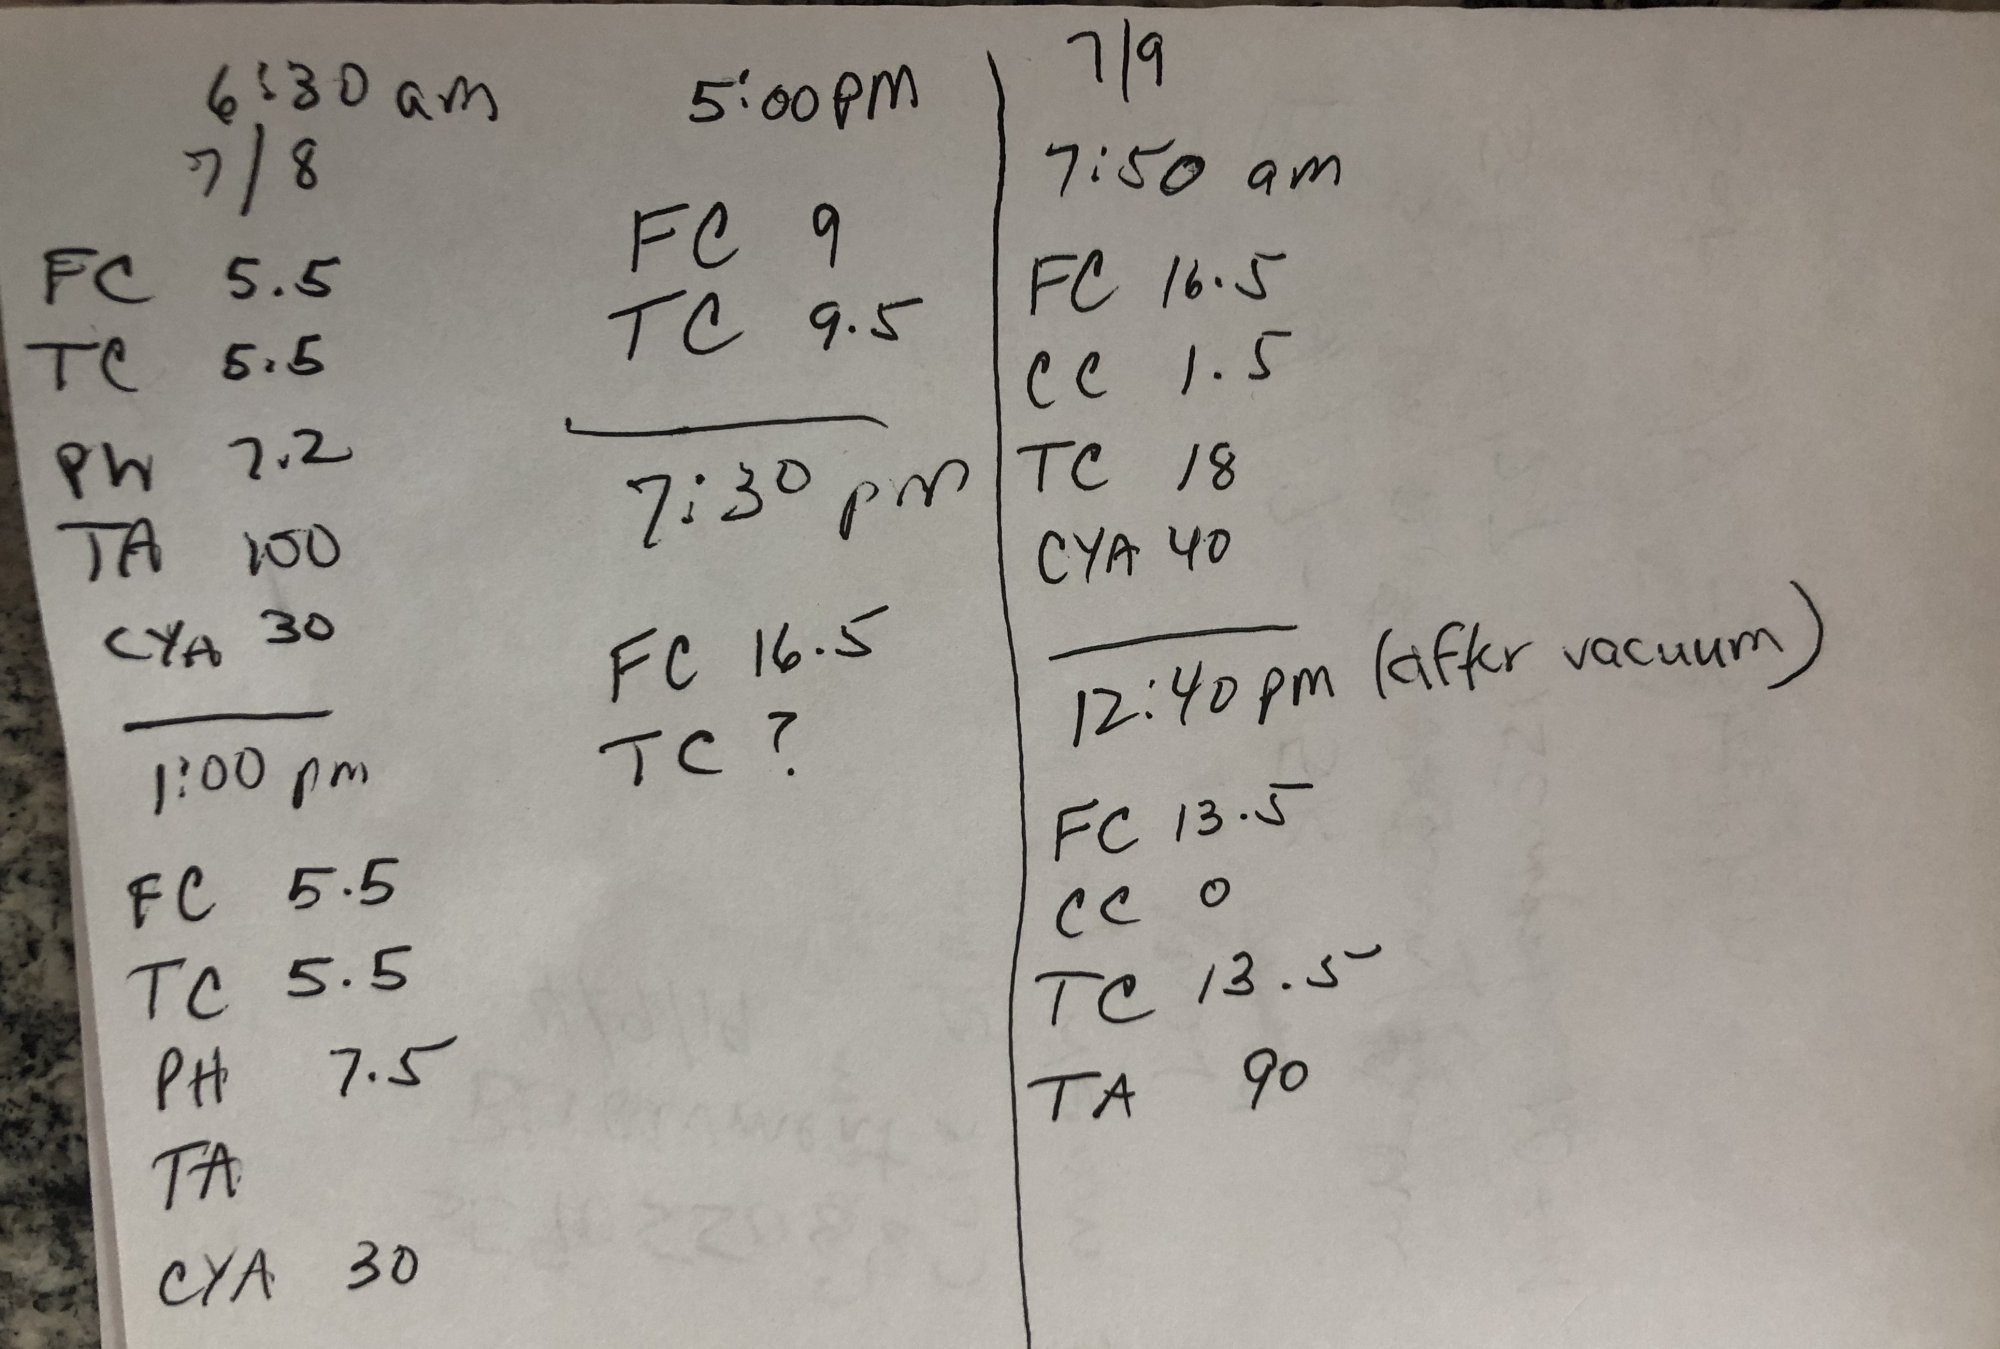 6:30 am
7/8
FC 5.5
TC 5.5
PH 7.2
TA 100
CYA 30
1:00 pm
FC 5.5
TC 5.5
PH 7.5
TA
CYA 30
5:00 PM
FC 9
TC 9.5
7:30 pm
FC 16.5
TC ?
7/9
7:50 am
FC 16.5
CC 1.5
TC 18
CYA 40
12:40 pm (after vacuum)
FC 13.5
CC 0
TC 13.5
TA 90